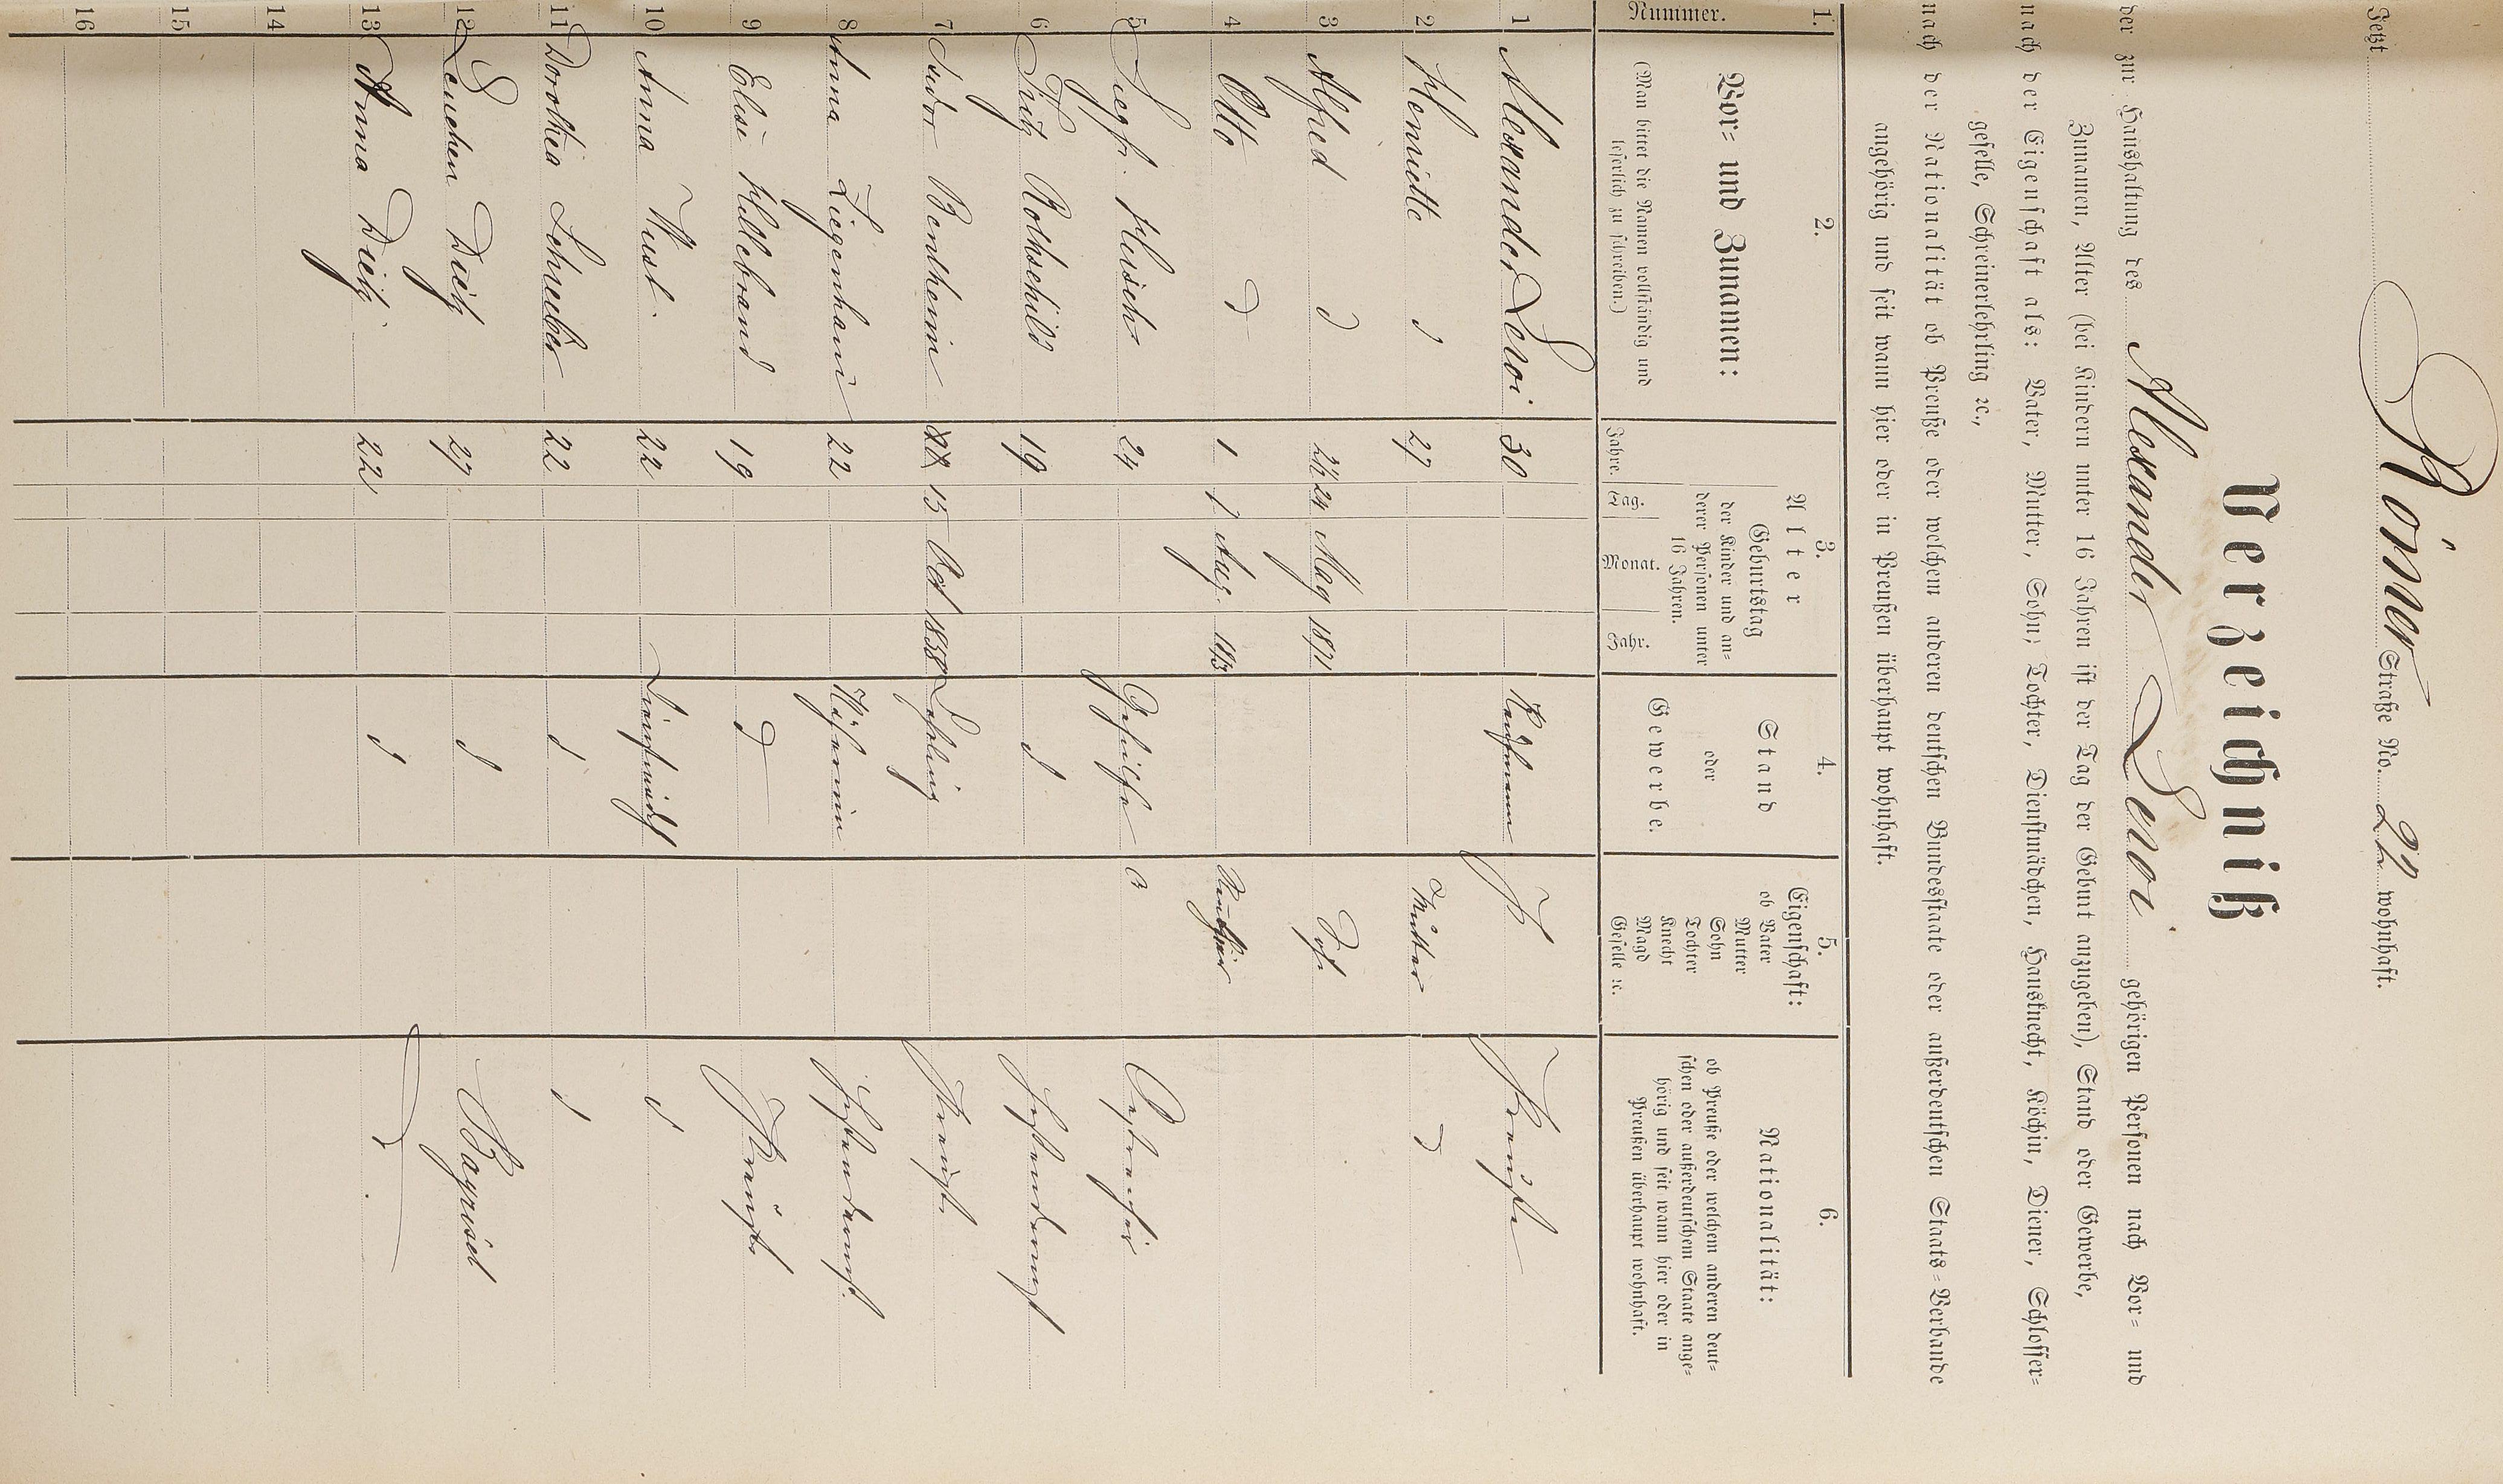 Jetzt Römer Straße No. 22 wohnhaft.
Verzeichniß
der zur Haushaltung des Alexander Levoi gehörigen Personen nach Vor- und
Zunamen, Alter (bei Kindern unter 16 Jahren ist der Tag der Geburt anzugeben), Stand oder Gewerbe,
nach der Eigenschaft als: Vater, Mutter, Sohn, Tochter, Dienstmädchen, Hausknecht, Köchin, Diener, Schlosser-
geselle, Schreinerlehrling ꝛc.,
nach der Nationalität ob Preuße oder welchem anderen deutschen Bundesstaate oder außerdeutschen Staats-Verbande
angehörig und seit wann hier oder in Preußen überhaupt wohnhaft.
1. 2. 3. 4. 5. 6.
Nummer.
Vor- und Zunamen:
(Man bittet die Namen vollständig und
leserlich zu schreiben.)
Alter
Geburtstag
der Kinder und an-
derer Personen unter
16 Jahren.
Jahre. Tag. Monat. Jahr.
Stand
oder
Gewerbe.
Eigenschaft:
ob Vater
Mutter
Sohn
Tochter
Knecht
Magd
Geselle ꝛc.
Nationalität:
ob Preuße oder welchem anderen deut-
schen oder außerdeutschem Staate ange-
hörig und seit wann hier oder in
Preußen überhaupt wohnhaft.
1 Alexander Levoi 30 Kaufmann Preuße
2 Henriette d 27 Mutter d
3 Alfred d 2½ 24 May 1871
4 Otto d 1 1 Aug.
5 Siegf. Hirsch 24 Gehülfe
6 Fritz Rothschild 19 d
7 Isidor Bentheim 15 Oct 1858 Lehrling Preuß.
8 Anna Ziegenhain 22 Näherin
9 Elise Hillebrand 19 d Preuß.
10 Anna Wust. 22 Dienstmädch d
11 Dorothea Schreiber 22 d d
12 Lenchen Dietz 27 d Bayrisch
13 Anna Dietz. 22 d
14
15
16